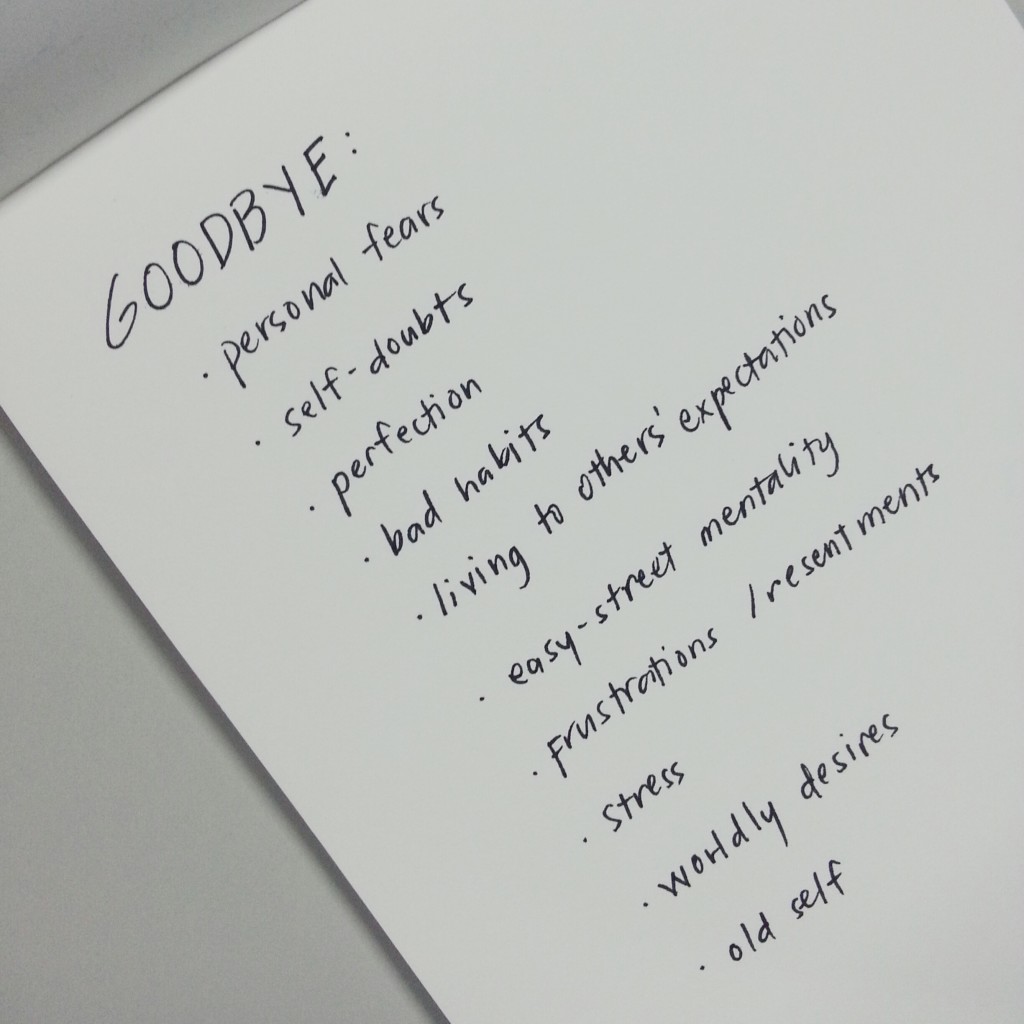 GOODBYE:
· personal fears
· self-doubts
· perfection
· bad habits
· living to others' expectations
· easy-street mentality
· Frustrations / resentments
· stress
· worldly desires
· old self